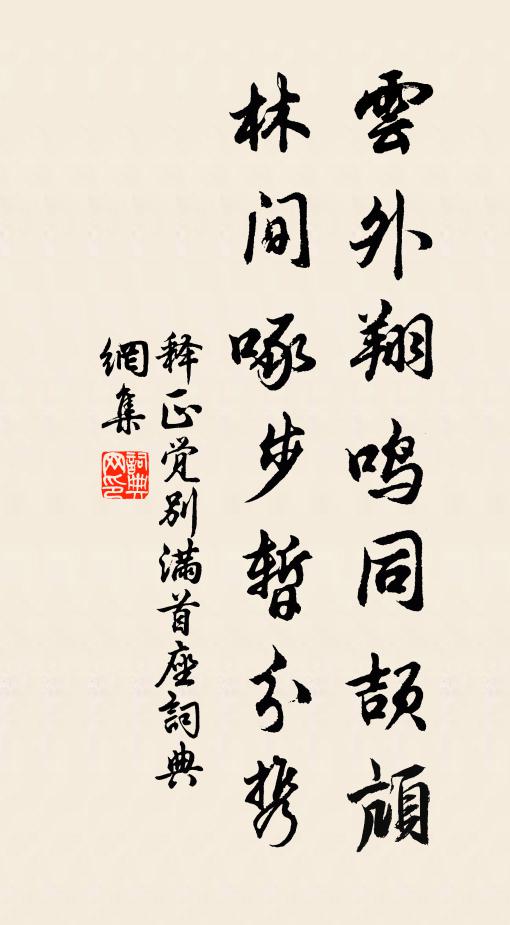 雲外翔鳴同頡頏
林间啄步暫分携
释正觉别满首座詞典
網集
詞典網印